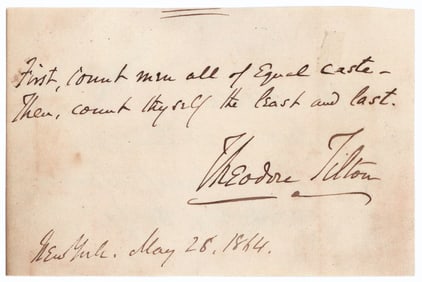 First, count men all of Equal caste –
Then, count thyself the least and last.
Theodore Tilton
New York. May 28, 1864.